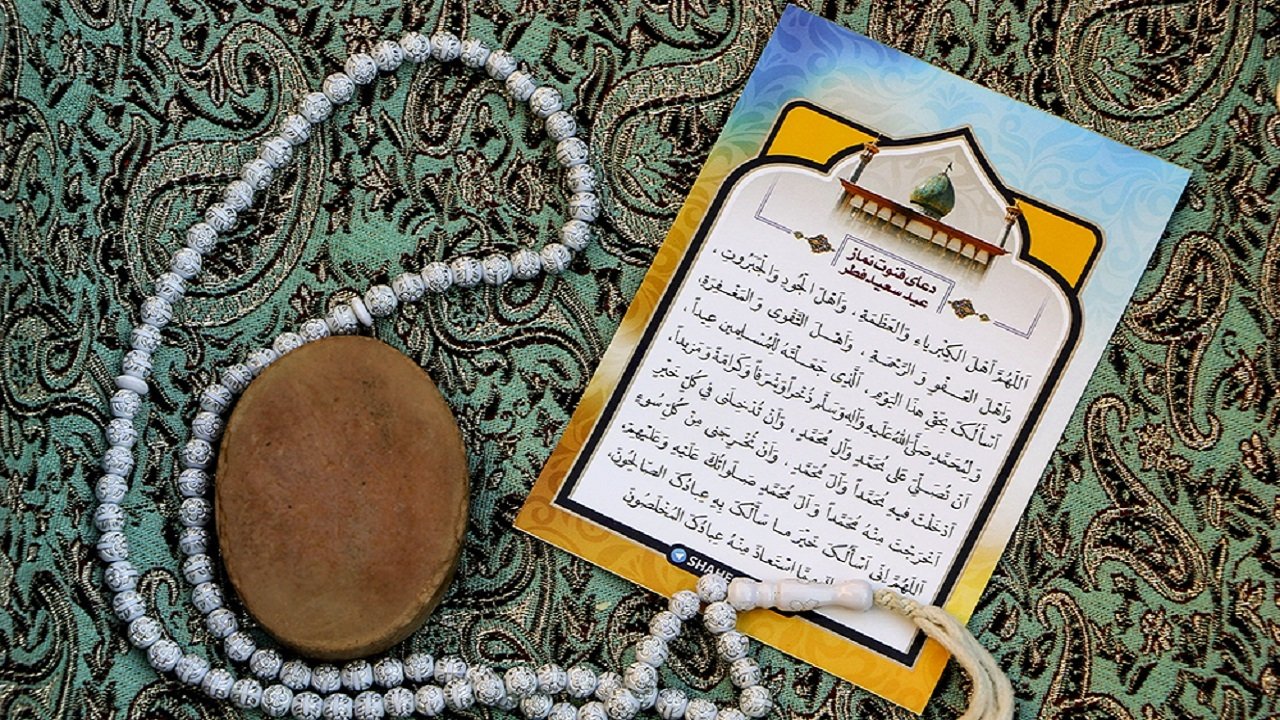 دعای قنوت نماز
عید سعید فطر
اَللّهُمَّ اَهْلَ الْکِبْرِیاءِ وَالْعَظَمَةِ ، وَاَهْلَ الْجُودِ وَالْجَبَرُوتِ ،
وَاَهْلَ الْعَفْوِ وَ الرَّحْمَةِ ، وَاَهْلَ التَّقْوی وَ الْمَغْفِرَةِ ،
اَسْاَلُکَ بِحَقِّ هذَا الْیَومِ ، اَلَّذی جَعَلْتَهُ لِلْمُسْلِمینَ عیداً ،
وَ لِمُحَمَّدٍ صَلَّی اللهُ عَلَیهِ وَآلِهِ وَسَلَّم ذُخْراً وَ شَرَفاً وَ کَرامَةً وَ مَزیداً ،
اَنْ تُصَلِّیَ عَلی مُحَمَّدٍ وَآلِ مُحَمَّدٍ ، وَاَنْ تُدْخِلَنی فی کُلِّ خَیْرٍ
اَدْخَلْتَ فیهِ مُحَمَّداً وَآلَ مُحَمَّدٍ ، وَاَنْ تُخْرِجَنی مِنْ کُلِّ سُوءٍ
اَخْرَجْتَ مِنْهُ مُحَمَّداً وَ آلَ مُحَمَّدٍ صَلَواتُکَ عَلَیْهِ وَعَلَیْهِمْ،
اَللّهُمَّ اِنّی اَسْاَلُکَ خَیْرَ ما سَأَلَکَ بِهِ عِبادُکَ الصّالِحُونَ،
اسْتَعاذَ مِنْهُ عِبادُکَ الْمُخْلَصُونَ